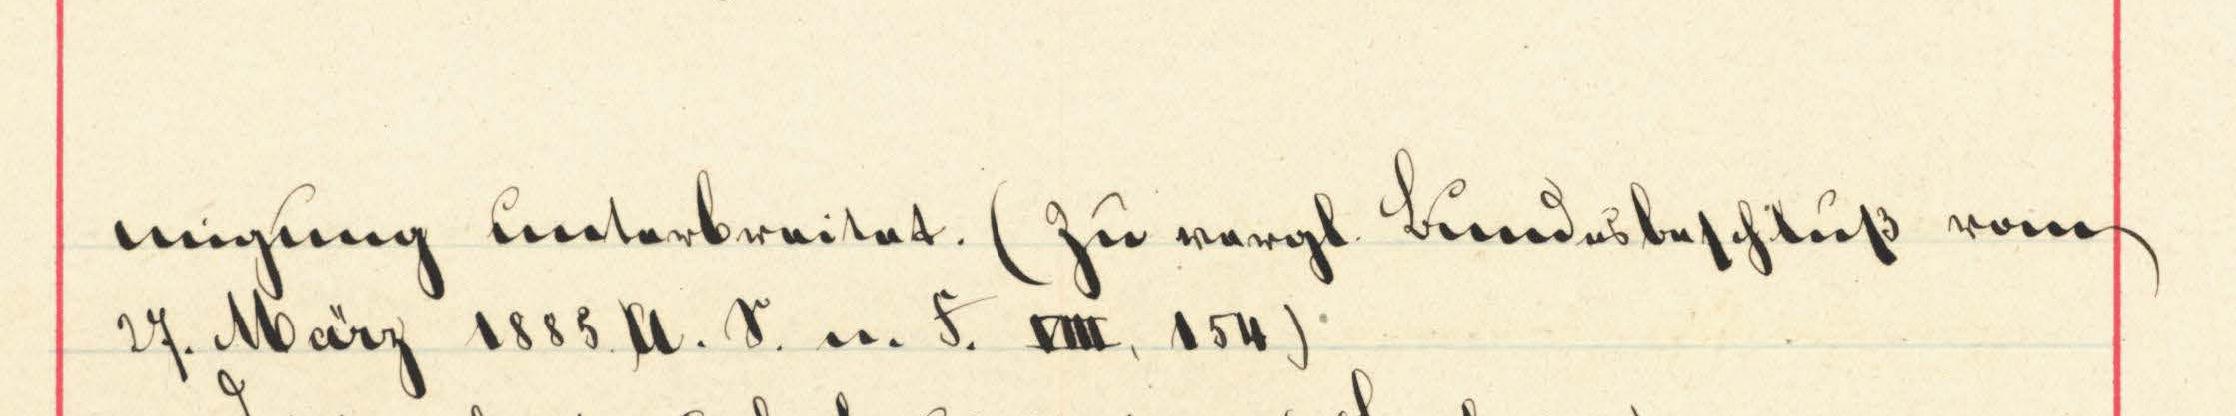 migung unterbreitet. (Zu vergl. Bundesbeschluß vom
27. März 1885. A. S. n. F. VIII, 154)